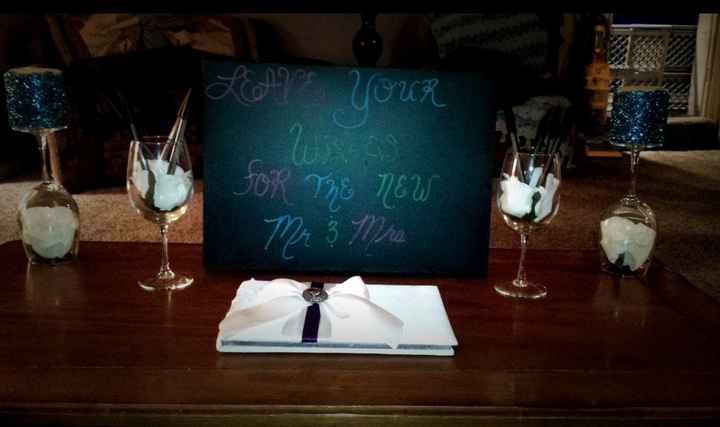 LEAVE YOUR
WISHES
FOR THE NEW
Mr & Mrs